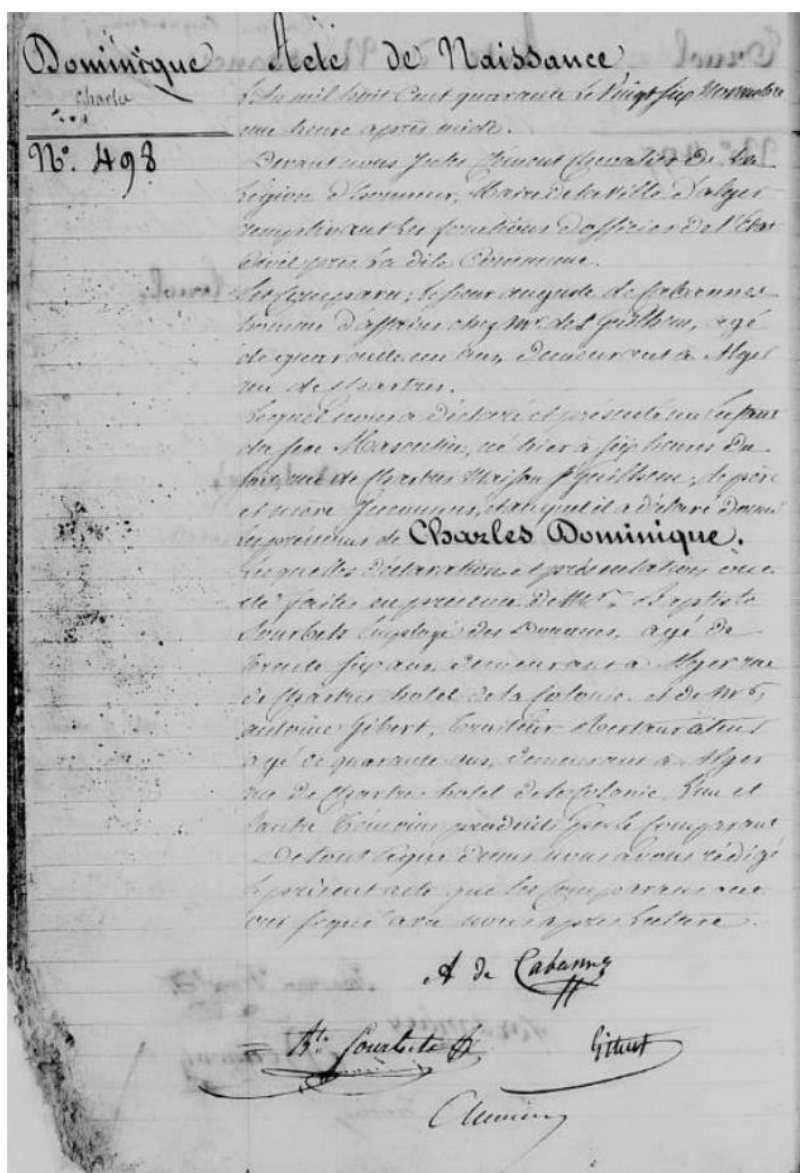 Dominique
Charles
N.º 498
Acte de Naissance
L'An mil huit Cent quarante le Vingt six Novembre
une heure après midi.
Devant nous Jules Clément Chevalier de La
Légion d'honneur, Maire de la Ville d'alger
remplissant les fonctions d'officier de l'Etat
Civil pour La dite Commune.
Est Comparu, le sieur auguste de Cabannes
homme d'affaires chez Mr. de St Guilhem, agé
de quarante un ans, demeurant à Alger
rue de Chartres.
Lequel nous a déclaré et présenté un Enfant
du sexe Masculin, né hier à six heures du
soir, rue de Chartres Maison St Guilhem, de père
et mère Inconnus, et auquel il a déclaré donner
les prénoms de Charles Dominique.
Lesquelles déclaration et présentation ont
été faites en présence de Mr. Baptiste
Sourbets Employé des Douanes, agé de
trente six ans, demeurant à Alger rue
de Chartres hotel de la Colonie. et de Mr
antoine Gibert, traiteur Restaurateur
agé de quarante ans, demeurant à Alger
rue de Chartres hotel de la Colonie, L'un et
l'autre témoins produits par le Comparant
De tout ce que dessus nous avons rédigé
le présent acte que les Comparans
ont signé avec nous après lecture.
A de Cabannes
Bte. Sourbets
Gibert